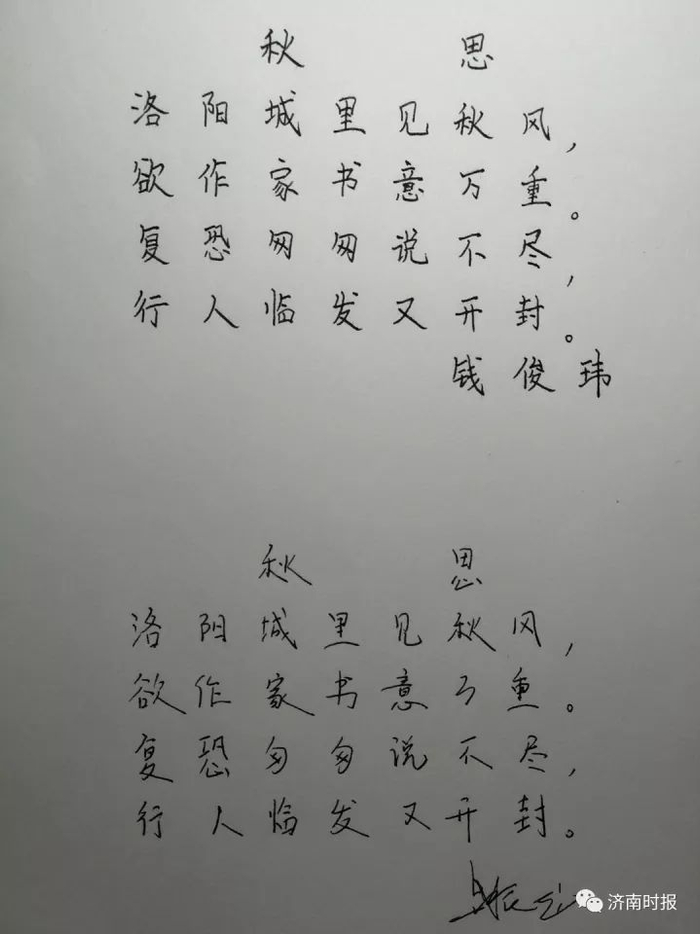 秋 思
洛阳城里见秋风，
欲作家书意万重。
复恐匆匆说不尽，
行人临发又开封。
钱俊玮
秋 思
洛阳城里见秋风，
欲作家书意万重。
复恐匆匆说不尽，
行人临发又开封。
济南时报